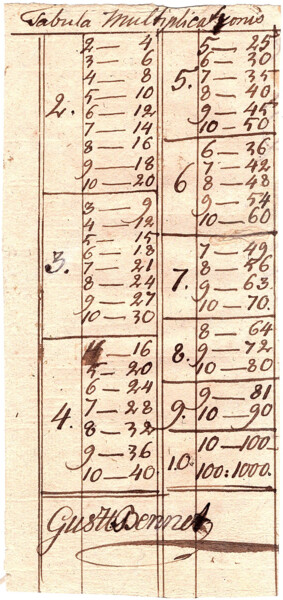 Tabula Multiplicationis
2.
2 — 4
3 — 6
4 — 8
5 — 10
6 — 12
7 — 14
8 — 16
9 — 18
10 — 20
3.
3 — 9
4 — 12
5 — 15
6 — 18
7 — 21
8 — 24
9 — 27
10 — 30
4.
4 — 16
5 — 20
6 — 24
7 — 28
8 — 32
9 — 36
10 — 40.
5.
5 — 25
6 — 30
7 — 35
8 — 40
9 — 45
10 — 50
6
6 — 36
7 — 42
8 — 48
9 — 54
10 — 60
7.
7 — 49
8 — 56
9 — 63
10 — 70.
8.
8 — 64
9 — 72
10 — 80
9.
9 — 81
10 — 90
10.
10 — 100.
100: 1000.
Gust. Bennet